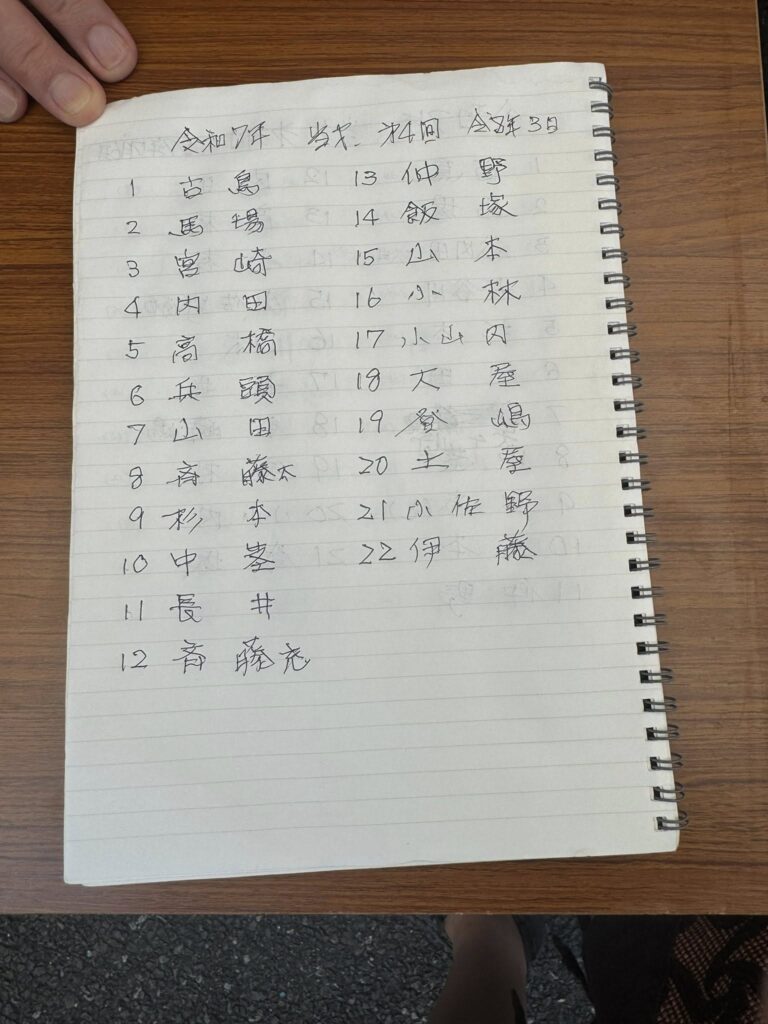 令和7年 当尢 才4回 令8年3日
1 古島
2 馬場
3 宮崎
4 内田
5 高橋
6 兵頭
7 山田
8 斉藤太
9 杉本
10 中基
11 長井
12 斉藤充
13 仲野
14 飯塚
15 山本
16 小林
17 小山内
18 大屋
19 登嶋
20 土屋
21 小佐野
22 伊藤